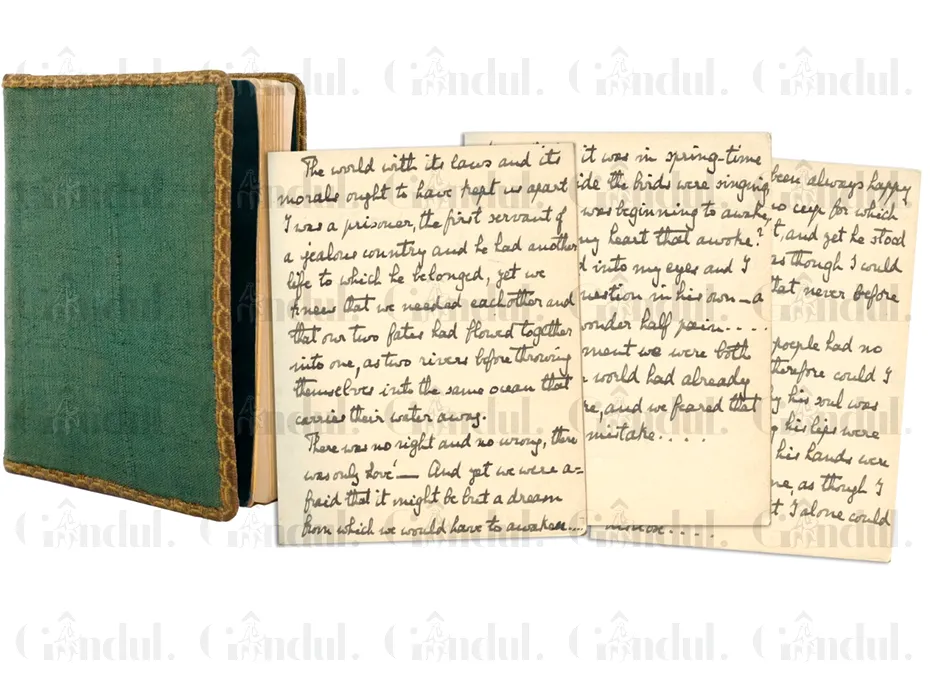 Gândul. Gândul. Gândul. Gândul. Gândul.
The world with its laws and its
morals ought to have kept us apart
I was a prisoner, the first servant of
a jealous country and he had another
life to which he belonged, yet we
knew that we needed eachother and
that our two fates had flowed together
into one, as two rivers before throwing
themselves into the same ocean that
carries their water away.
There was no right and no wrong, there
was only love! — And yet we were a-
fraid that it might be but a dream
from which we would have to awaken....
it was in spring-time
ide the birds were singing
was beginning to awake,
my heart that awoke?
d into my eyes and I
uestion in his own — a
onder half pain....
ment we were both
world had already
re, and we feared that
mistake....
been always happy
no cup for which
t, and yet he stood
as though I could
that never before
people had no
therefore could I
his soul was
his lips were
his hands were
me, as though I
t, I alone could
Gândul. Gândul. Gândul. Gândul. Gândul.